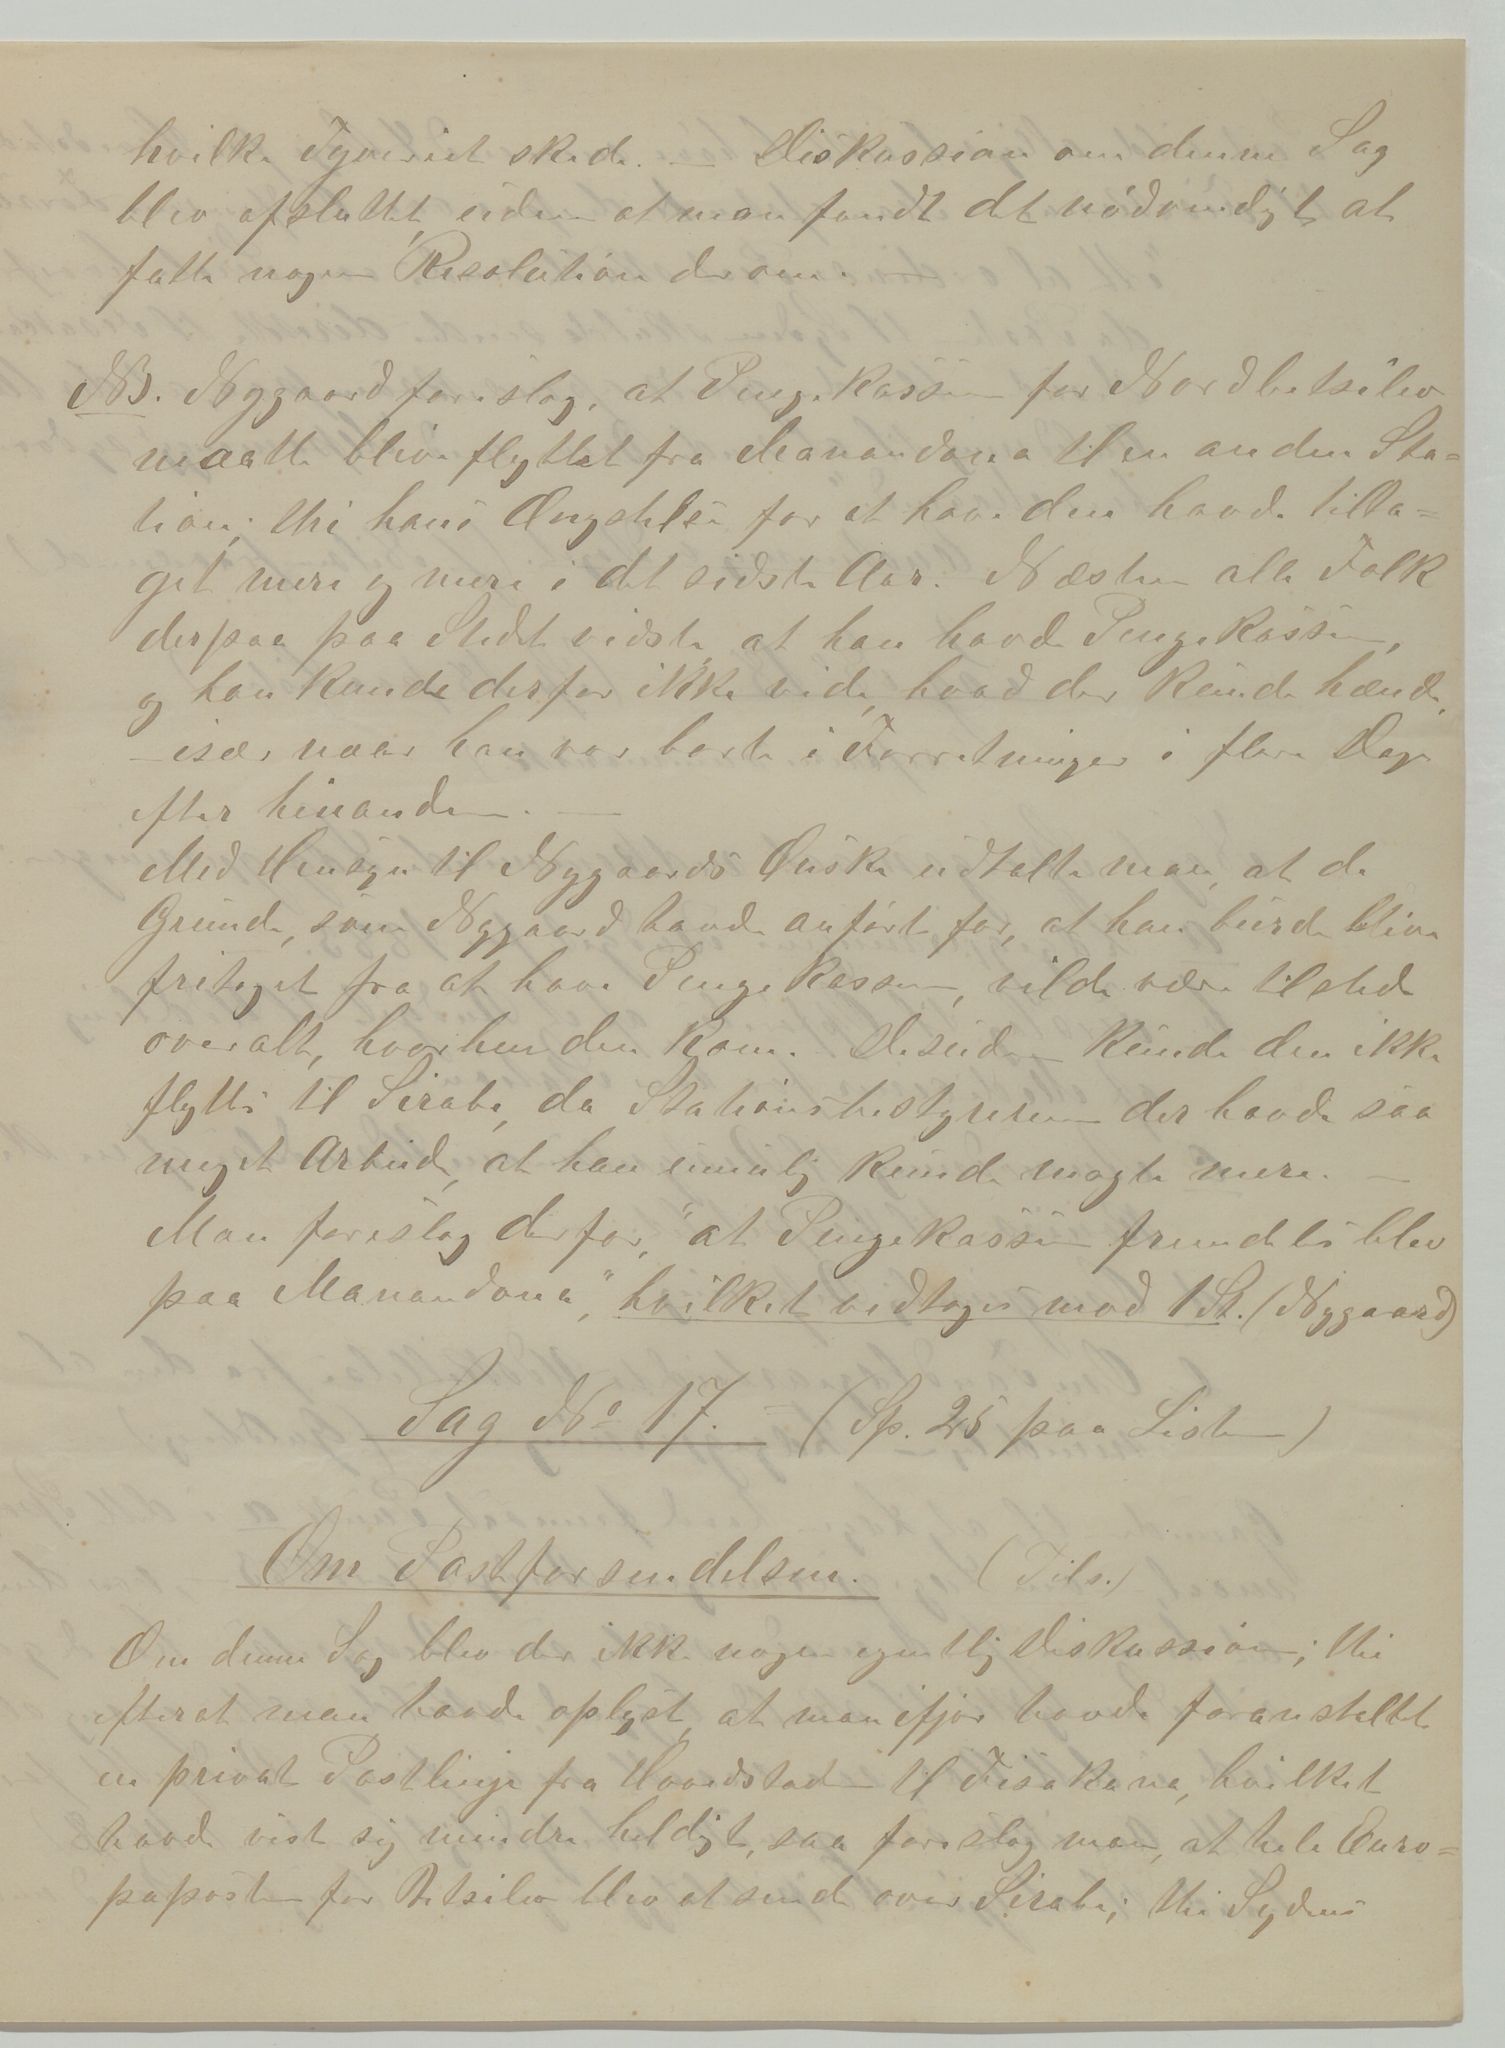 hvilke Tyveriet skede. — Diskussion om denne Sag
blev afsluttet, uden at man fandt det nödvendigt at
fatte nogen Resolution derom. —
NB. Nygaard foreslog, at Pengekassen for Nordbetsileo
maatte blive flyttet fra Manandona til en anden Sta=
tion; thi hans Ængstelse for at have den havde tilta=
get mere og mere i det sidste Aar. Næsten alle Folk
derpaa paa Stedet vidste, at han havde Pengekassen,
og han kunde derfor ikke vide, hvad der kunde hænde,
– især naar han var borte i Forretninger i flere Dage
efter hinanden. —
Med Hensyn til Nygaards Ønske udtalte man, at de
Grunde, som Nygaard havde anført for, at han burde blive
fritaget fra at have Pengekassen, vilde være tilstede
overalt, hvorhen den kom. Desuden kunde den ikke
flyttes til Sirabe, da Stationsbestyreren der havde saa
meget Arbeide, at han umulig kunde magte mere. —
Man foreslog derfor, "at Pengekassen fremdeles blev
paa Manandona", hvilket vedtoges mod 1 St. (Nygaard)
Sag No 17. – (Sp. 25 paa Listen)
Om Postforsendelsen. (Fils.)
Om denne Sag blev der ikke nogen egentlig Diskussion; thi
efterat man havde oplyst, at man ifjor havde foranstaltet
en privat Postlinje fra Hovedstaden til Fisakana, hvilket
havde vist sig mindre heldigt, saa foreslog man, at hele Euro=
paposten for Betsileo blev at sende over Sirabe; thi Sydens